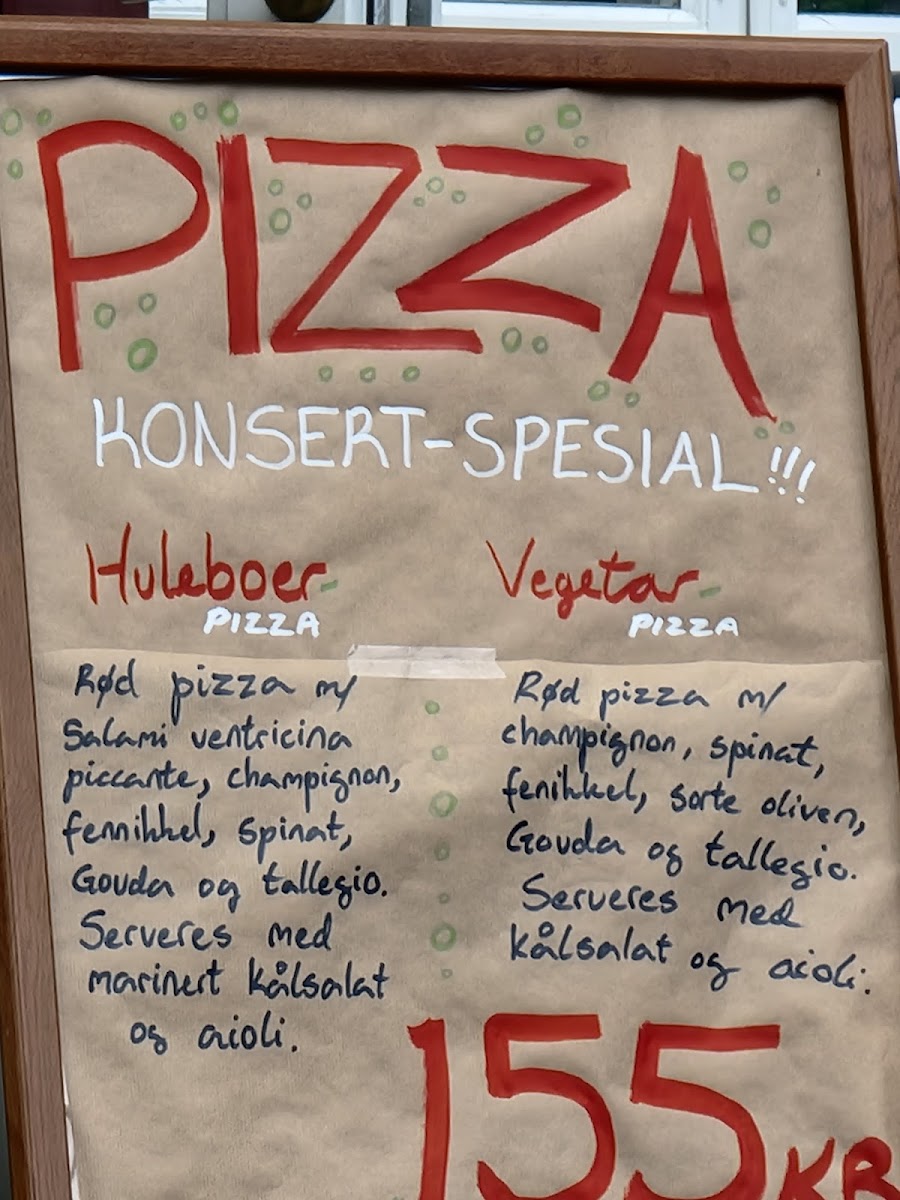 PIZZA
KONSERT-SPESIAL!!!
Huleboer-
PIZZA
Rød pizza m/
Salami ventricina
piccante, champignon,
fennikkel, spinat,
Gouda og tallegio.
Serveres med
marinert kålsalat
og aioli.
Vegetar-
PIZZA
Rød pizza m/
champignon, spinat,
fenikkel, sorte oliven,
Gouda og tallegio.
Serveres med
kålsalat og aioli.
155 KR